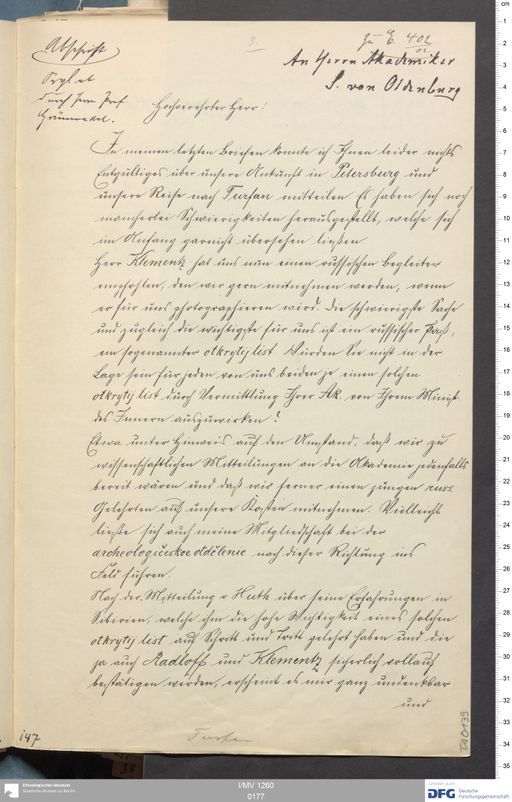 Abschrift
zu E. 402
02
3.
An Herrn Akademiker
S. von Oldenburg
Orgl. at
durch Herrn Prof
Grünwedel.
Hochverehrter Herr!
In meinen letzten Briefen konnte ich Ihnen leider nichts
Entgültiges über unsere Ankunft in Petersburg und
unsere Reise nach Turfan mitteilen. Es haben sich noch
mancherlei Schwierigkeiten herausgestellt, welche sich
im Anfang garnicht übersehen ließen.
Herr Klementz hat uns nun einen russischen Begleiter
empfohlen, den wir gern mitnehmen werden, wenn
er für uns photographieren wird. Die schwierigste Sache
und zugleich die wichtigste für uns ist ein russischer Paß,
ein sogenannter otkrytij list. Würden Sie nicht in der
Lage sein für jeden von uns beiden je einen solchen
otkrytij list durch Vermittlung Ihrer Ak. von Ihrem Minist.
des Innern auszuwirken?
Etwa unter Hinweis auf den Umstand, daß wir zu
wissenschaftlichen Mitteilungen an die Akademie jedenfalls
bereit wären und daß wir ferner einen jungen russ.
Gelehrten auf unsere Kosten mitnehmen. Vielleicht
ließe sich auch meine Mitgliedschaft bei der
archeologičeskoe otdělenie nach dieser Richtung ins
Feld führen.
Nach der Mitteilung v Huth über seine Erfahrungen in
Siberien, welche ihm die hohe Wichtigkeit eines solchen
otkrytij list auf Schritt und Tritt gelehrt haben und die
ja auch Radloff und Klementz sicherlich vollauf
bestätigen werden, erscheint es mir ganz undenkbar
und
147
Turfan
TA 0139
Ethnologisches Museum
Staatliche Museen zu Berlin
I/MV 1260
0177
Gefördert durch
DFG Deutsche
Forschungsgemeinschaft